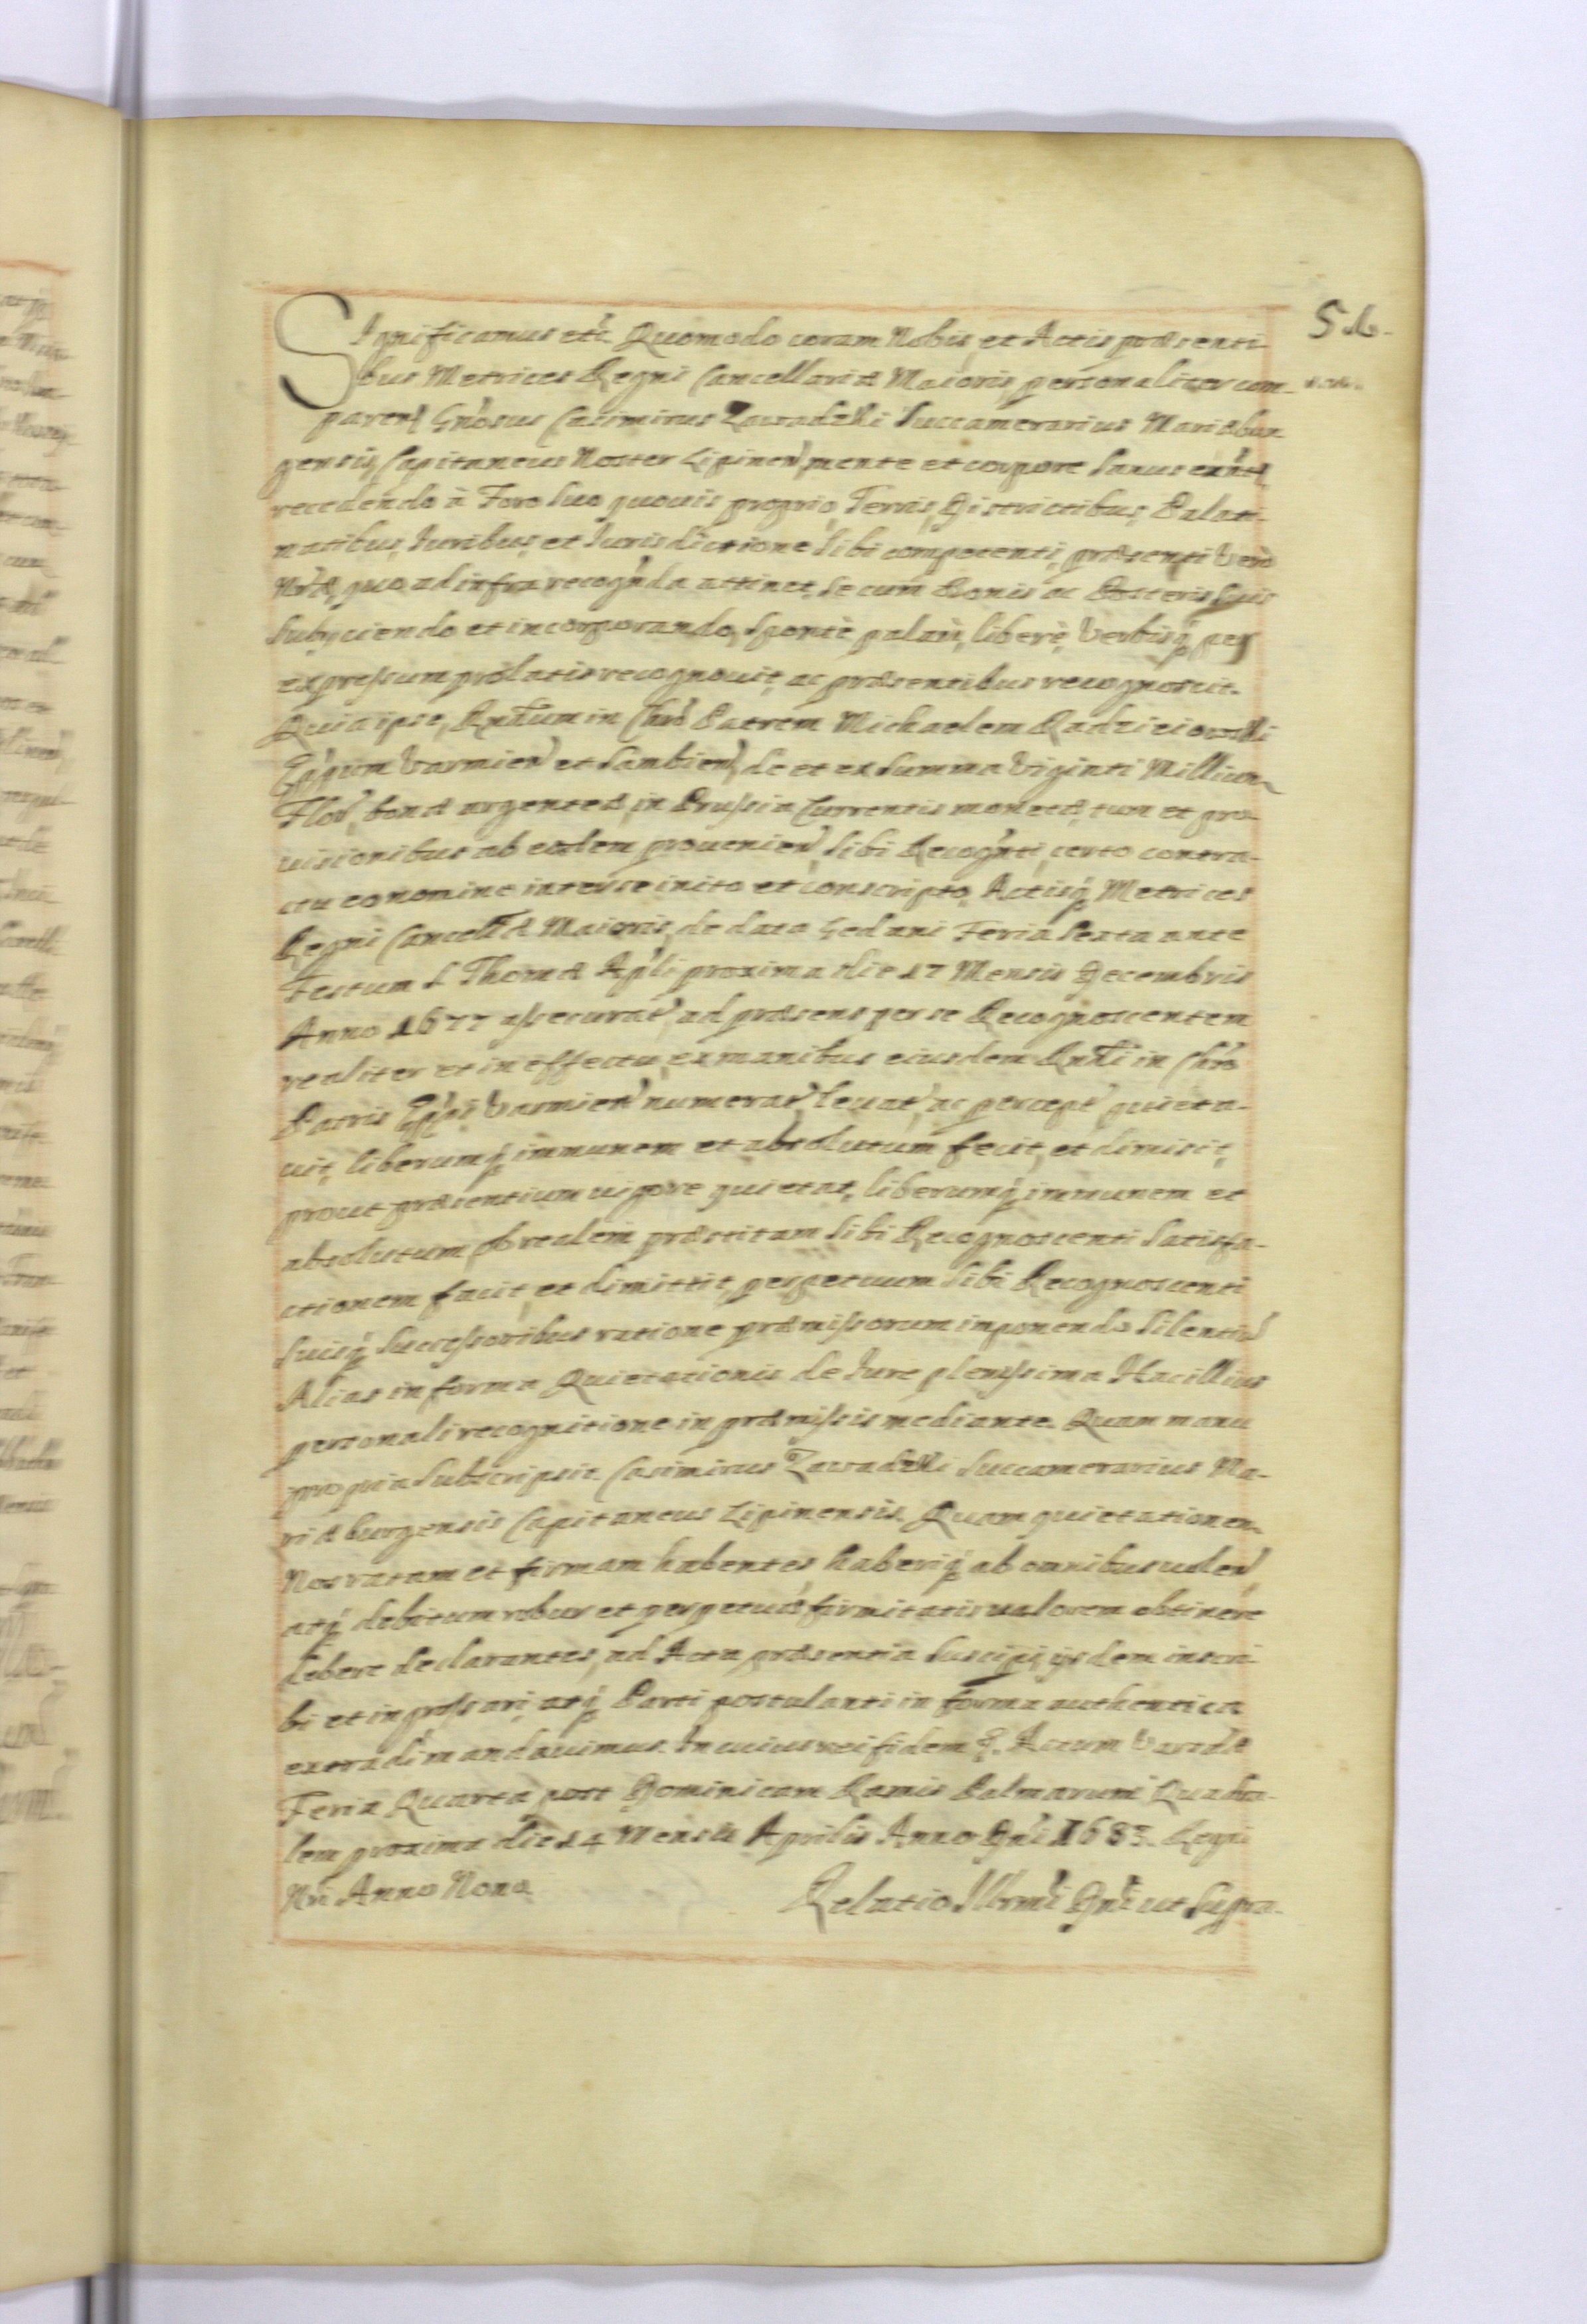 Significamus etc. Quomodo coram Nobis et Actis præsenti-
bus Metrices Regni Cancellariæ Maioris personaliter com-
paren̄ Gn̄osus Casimirus Zawadzki Succamerarius Mariæbur-
gensis, Capitaneus Noster Lipinen̄, mente et corpore sanus exn̄s
recedendo à Foro suo quovis proprio, Terris, Districtibus, Palati-
natibus, Iuribus, et Iurisdictione sibi competenti, præsenti verò
Nræ, quo ad infra recogn̄da attinet, se cum Bonis ac Posteris suis
subijciendo et incorporando, sponte palam, liberè, Verbisq; per
expressum prolatis recognouit, ac præsentibus recognoscit.
Quia ipse, Rndum in Chro Patrem Michaelem Radzieiowski
Ep̄pum Varmien̄ et Sambien̄, de et ex summa Viginti Millium
Flor̄, bonæ argenteæ, in Prussia Currentis monetæ, tum et pro-
uisionibus ab eadem prouenien̄, sibi Recogn̄ti, certo contra-
ctu eo nomine inter se inito et conscripto, Actisq; Metrices
Regni Cancellæ Maioris, de data Gedani Feria Sexta ante
Festum S Thomæ Ap̄li proxima die 17 Mensis Decembris
Anno 1677 assecurat̄, ad præsens per se Recognoscentem
realiter et in effectu, ex manibus eiusdem Rndi in Chro
Patris Ep̄pi Varmien̄ numerat̄, leuat̄, ac percept̄ quieta-
uit, liberumq; immunem et absolutum fecit, et dimisit,
prout præsentium uigore quietat, liberumq; immunem et
absolutum, ob realem præstitam sibi Recognoscenti satisfa-
ctionem facit, et dimittit, perpetuum sibi Recognoscenti
suisq; Successoribus ratione præmissorum imponendo silentiū
Alias in forma Quietationis de Iure plenissima Hac illius
personali recognitione in præmissis mediante. Quam manu
propria subscripsit. Casimirus Zawadzki Succamerarius Ma-
riæburgensis Capitaneus Lipinensis. Quam quietationem
Nos ratam et firmam habentes haberiq; ab omnibus uolen̄
atq; debitum robur et perpetuæ firmitatis ualorem obtinere
debere declarantes, ad Acta præsentia suscipi, ijsdem inscri-
bi et ingrossari, atq; Parti postulanti in forma authentica
extradi mandauimus. In cuius rei fidem &. Actum
Feria Quarta post Dominicam Ramis Palmarum
proxima die 14 Mensis Aprilis Anno Dni 1683. Regni
Nri Anno Nono
Relatio Illrmi Dni ut supra.